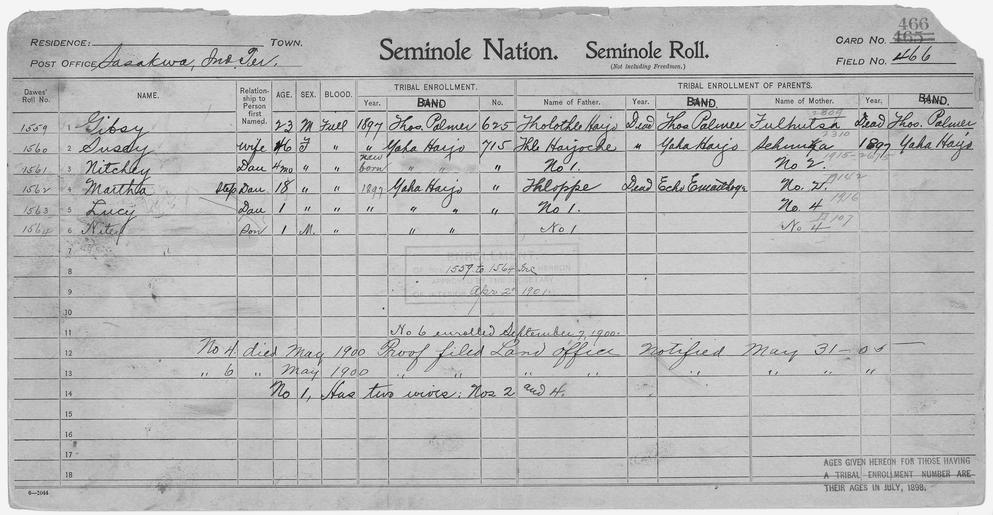 466
RESIDENCE: TOWN. Seminole Nation. Seminole Roll. CARD NO. 465
(Not including Freedmen.)
POST OFFICE Sasakwa, Ind. Ter. FIELD NO. 466
Dawes' Roll No. NAME. Relationship to Person first Named. AGE. SEX. BLOOD. TRIBAL ENROLLMENT. TRIBAL ENROLLMENT OF PARENTS.
Year. BAND No. Name of Father. Year. BAND. Name of Mother. Year. BAND.
1559 1 Gibsy 23 M Full 1897 Thos. Palmer 625 Tholothle Harjo Dead Thos Palmer Fulhutsa Dead Thos. Palmer
1560 2 Sussy Wife 46 F " " Yaha Hajo 715 Hajoche " Yaha Hajo 1897 Yaha Hajo
1561 3 Nitchey Dau 4mo " " new born " " " No 1. No 2.
1562 4 Martha Step Dau 18 " " 1897 Yaha Hajo " Thloppe Dead Echo Emathoge No. 2.
1563 5 Lucy Dau 1 " " " " " " No 1. No. 4
1564 6 Son 1 M. " " " No 1 No 4
7
8 1559 to 1564 Inc
9 Apr 2" 1901.
10
11 No 6 enrolled September 7, 1900.
12 No 4 died May 1900 Proof filed Land office Notified May 31-05
13 " 6 " May 1900 " " " " " " "
14 No 1, Has two wives: Nos 2 and 4.
15
16
17
18
AGES GIVEN HEREON FOR THOSE HAVING
A TRIBAL ENROLLMENT NUMBER ARE
THEIR AGES IN JULY, 1898.
6—2044